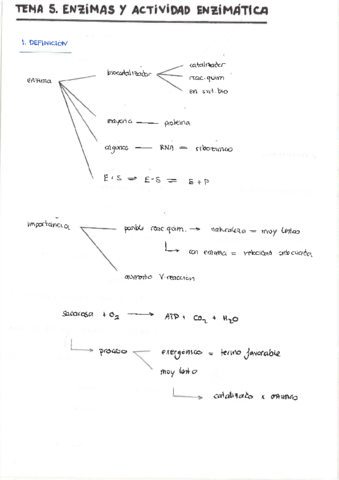 TEMA 5. ENZIMAS Y ACTIVIDAD ENZIMÁTICA
1. DEFINICION
enzima
biocatalizador
catalizador
reac. quim
en sist. bio
mayoria — proteina
algunos — RNA = ribozimas
E + S ⇌ E-S ⇌ E + P
importancia
posible reac quim. → naturaleza = muy lentas
con enzima = velocidad adecuada
aumento V reaccion
sacarosa + O2 → ATP + CO2 + H2O
proceso
exergónico = termo favorable
muy lento
catalizado x enzima